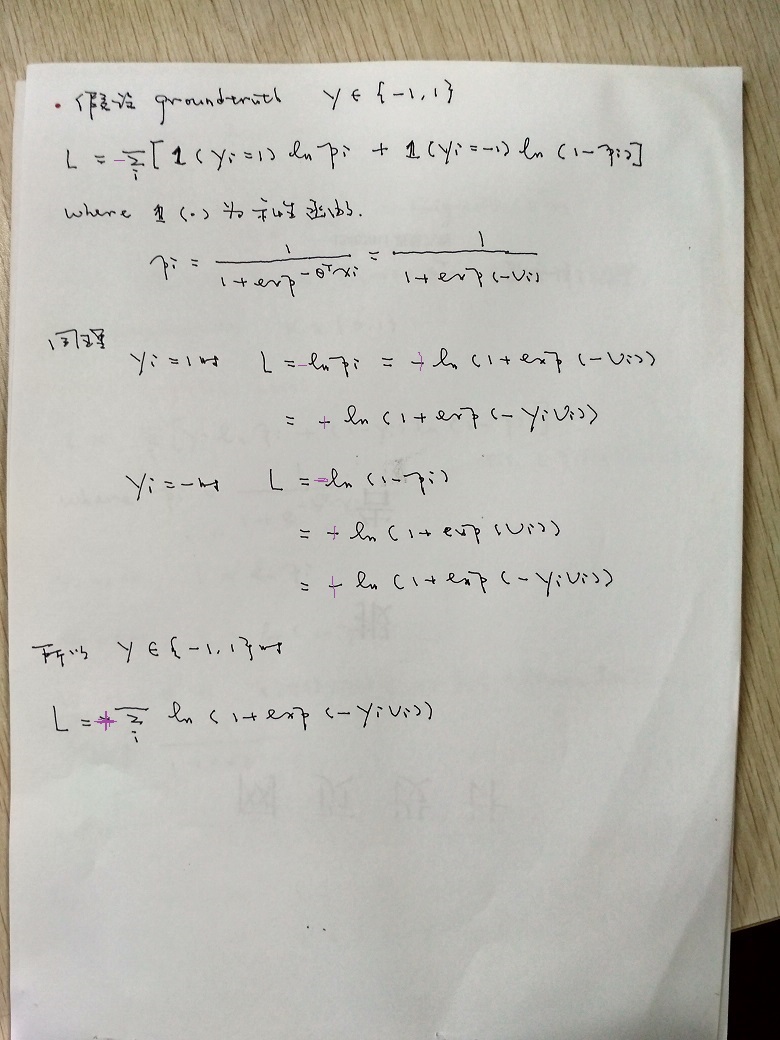 • 假设 groundtruth Y ∈ {-1, 1}
L = -∑i [ 𝟙(yi=1) ln pi + 𝟙(yi=-1) ln (1-pi) ]
where 𝟙(·) 为示性函数.
pi = 1 / (1+exp^{-θᵀxi}) = 1 / (1+exp(-Vi))
同理
yi=1时 L = -ln pi = + ln (1+exp(-Vi))
= + ln (1+exp(-yiVi))
yi=-时 L = -ln (1-pi)
= + ln (1+exp(Vi))
= + ln (1+exp(-yiVi))
所以 Y ∈ {-1, 1}时
L = +∑i ln (1+exp(-yiVi))